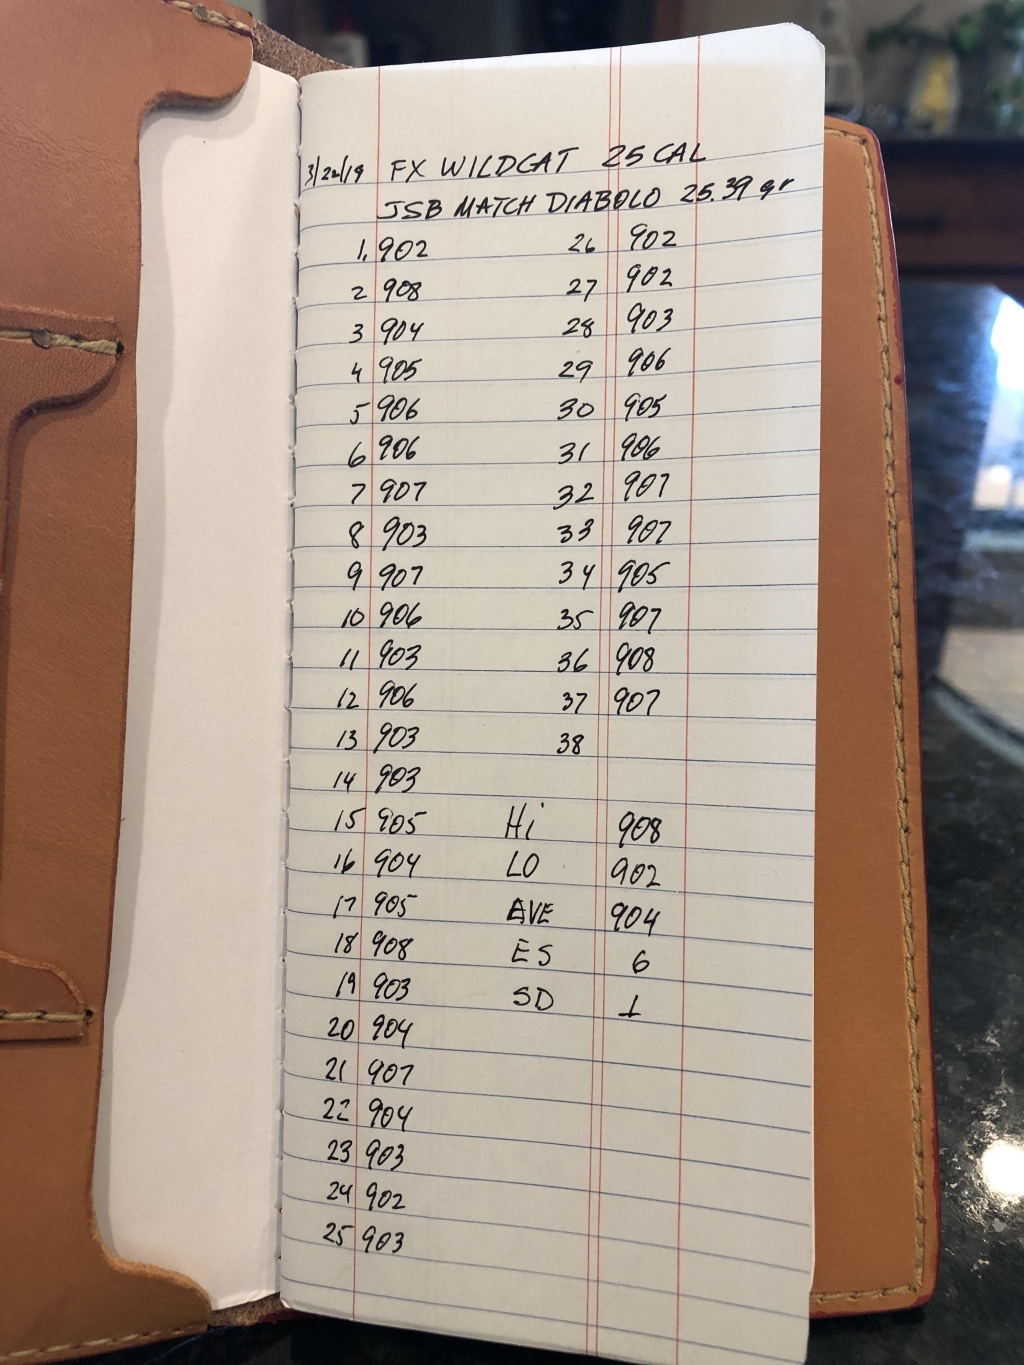 3/22/19 FX WILDCAT 25 CAL
JSB MATCH DIABOLO 25.39 gr
1. 902 26 902
2 908 27 902
3 904 28 903
4 905 29 906
5 906 30 905
6 906 31 906
7 907 32 907
8 903 33 907
9 907 34 905
10 906 35 907
11 903 36 908
12 906 37 907
13 903 38
14 903
15 905 Hi 908
16 904 LO 902
17 905 AVE 904
18 908 ES 6
19 903 SD 1
20 904
21 907
22 904
23 903
24 902
25 903